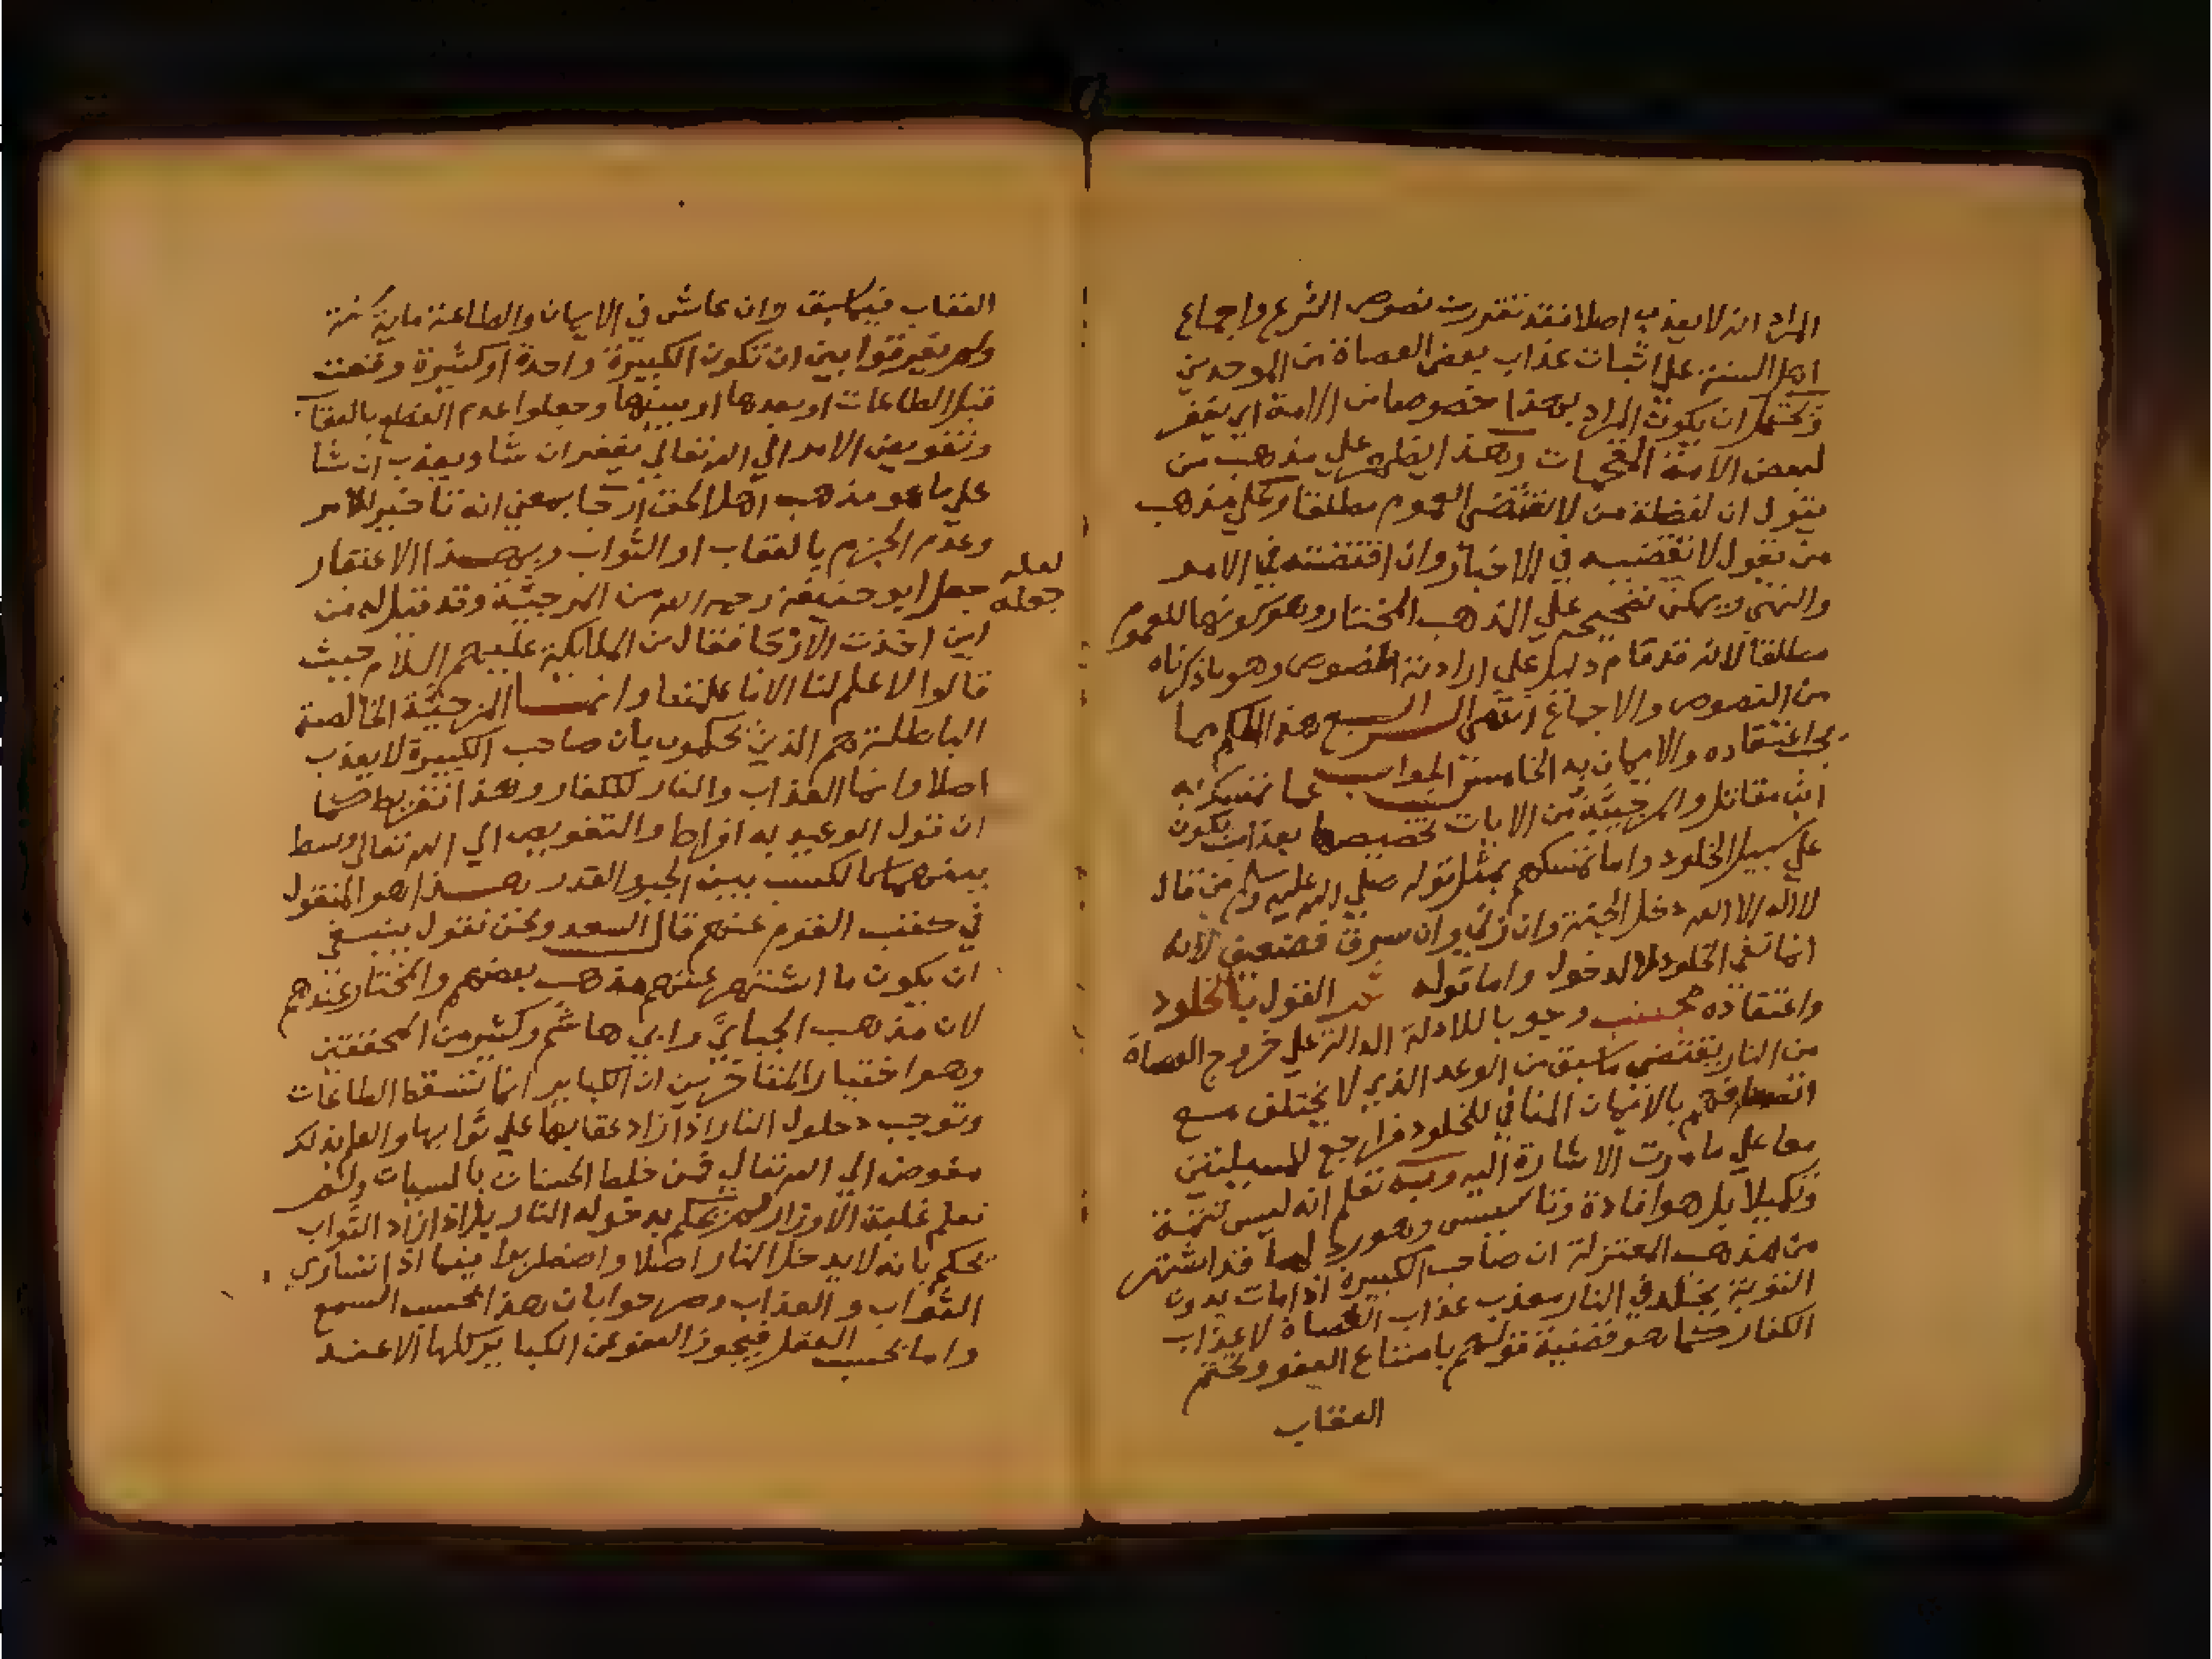 المراد انه لا يعذب اصلا فقد تقرر من نصوص الشرع واجماع
اهل السنة علي اثبات عذاب بعض العصاة من الموحدين
ويحتمل ان يكون المراد بهذا خصوصا من الامة اي يغفر
لبعض الامة المقحمات وهذا يظهر علي مذهب من
يقول ان لفظة من لا تقتضي العموم مطلقا وعلي مذهب
من يقول لا تقتضيه في الاخبار وان اقتضته في الامر
والنهي ويمكن تصحيحه علي المذهب المختار وهو كونها للعموم
مطلقا لانه قد قام دليل علي ارادة الخصوص وهو ما ذكرناه
من النصوص والاجماع انتهي الرابع هذا الحكم مما
يجب اعتقاده والايمان به الخامس الجواب عما تمسك به
ابن مقاتل والمرجيّة من الايات تخصيصها بعذاب يكون
علي سبيل الخلود واما تمسكهم بمثل قوله صلي الله عليه وسلم من قال
لا اله الا الله دخل الجنة وان زني وان سرق فضعيف لانه
انما نفي الخلود لا الدخول واما قوله ثم القول بالخلود
واعتقاده مجتنب وجوبا للادلة الدالة علي خروج العصاة
من النار بمقتضي ما سبق من الوعد الذي لا يختلف مع
اتصافهم بالايمان المنافي للخلود فراجع للمسيلتين
معا علي ما مرت الاشارة اليه وبه تعلم انه ليس تتمة
وتكميلا بل هو افادة وتاسيس وهو رد لما قد اشتهر
من مذهب المعتزلة ان صاحب الكبيرة اذا مات بدون
التوبة يخلد في النار معذب عذاب العصاة لا عذاب
الكفار كما هو قضية قولهم بامتناع العفو وتحتم
العقاب
العقاب فيما سبق وان عاش في الايمان والطاعة ماية سنة
ولم يفرقوا بين ان تكون الكبيرة واحدة او كثيرة وقعت
قبل الطاعات او بعدها او بينها وجعلوا عدم القطع بالعقاب
وتفويض الامر الي الله تعالي يغفر ان شا ويعذب ان شا
علي ما هو مذهب اهل الحق ارجا بمعني انه تاخير للامر
وعدم الجزم بالعقاب او الثواب وبهذا الاعتقار
لعله
جعله
جعل ابو حنيفة رحمه الله من المرجيّة وقد قيل له من
اين اخذت الارجا فقال من الملايكة عليهم السلام حيث
قالوا لا علم لنا الا ما علمتنا وانما المرجيّة الخالصة
الباطلة هم الذين يحكمون بان صاحب الكبيرة لا يعذب
اصلا وانما العذاب والنار للكفار وهذا تفريط كما
ان قول الوعيدية افراط والتفويض الي الله تعالي وسط
بينهما كالكسب بين الجبر والقدر هذا هو المنقول
في كتب القوم عنهم قال السعد ونحن نقول ينبغي
ان يكون ما اشتهر عنهم مذهب بعضهم والمختار عندهم
لان مذهب الجبايّ وابي هاشم وكثير من المحققين
وهو اختيار المتاخرين ان الكباير انما تسقط الطاعات
وتوجب دخول النار اذا زاد عقابها علي ثوابها والعلم بذلك
مفوض الي الله تعالي فمن خلط الحسنات بالسيات ولم
نعلم غلبة الاوزار لم نحكم بدخوله النار بل اذا زاد الثواب
نحكم بانه لا يدخل النار اصلا واضطربوا فيما اذا تساوي
الثواب والعذاب وصرحوا بان هذا بحسب السمع
واما بحسب العقل فيجوز العفو عن الكباير كلها الا عند